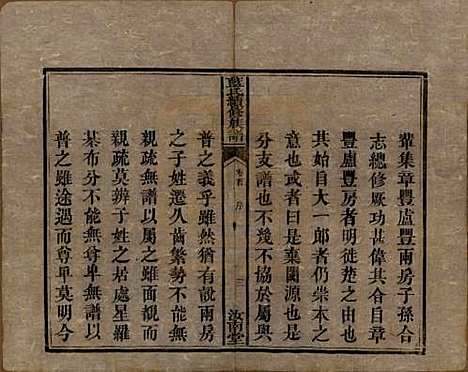 葦集章豐盧豐兩房子孫合
志總修厥功甚偉其合自章
豐盧豐房者明徙楚之由也
其始自大一郎者仍崇本之
意也或者曰是棄閩源也是
分支譜也不幾不協於屬與
藍氏續修族譜
卷首 序
三
汝南堂
普之義乎雖然猶有說兩房
之子姓遷久齒繁勢不能無
親疏無譜以屬之雖至戚而
親疏莫辨子姓之居處星羅
棊布分不能無尊卑無譜以
普之雖途遇而尊卑莫明今